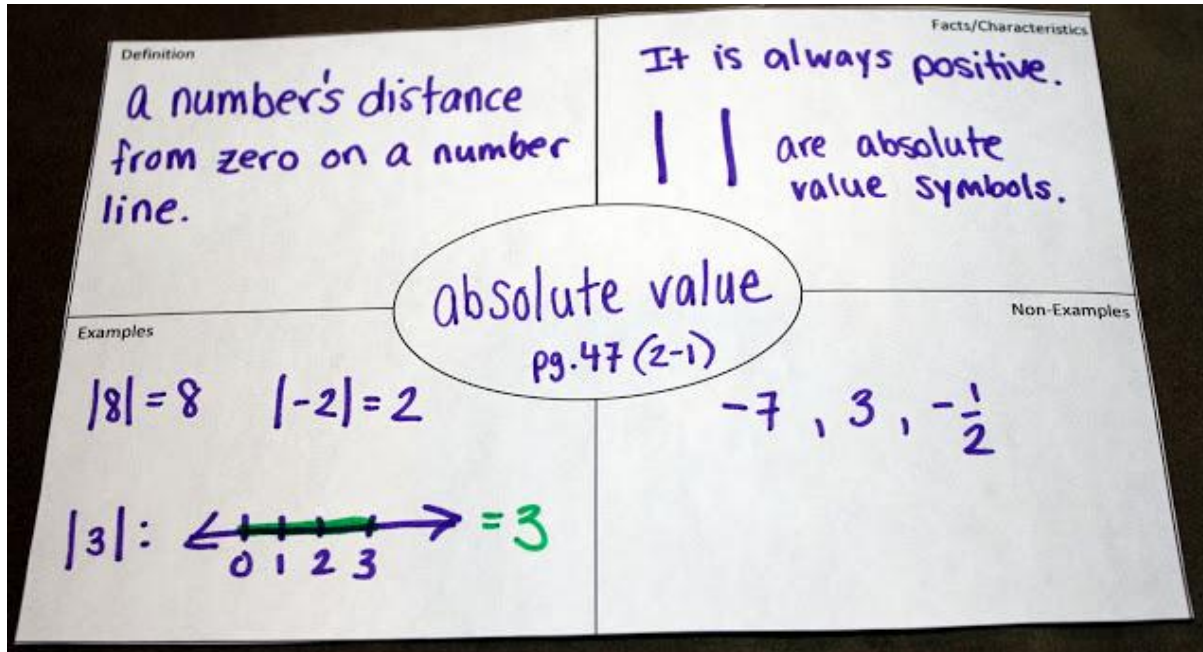 Definition
a number's distance
from zero on a number
line.
Facts/Characteristics
It is always positive.
| | are absolute
value symbols.
absolute value
pg.47 (2-1)
Examples
|8| = 8 |-2| = 2
|3|: = 3
0 1 2 3
Non-Examples
-7 , 3 , -1/2